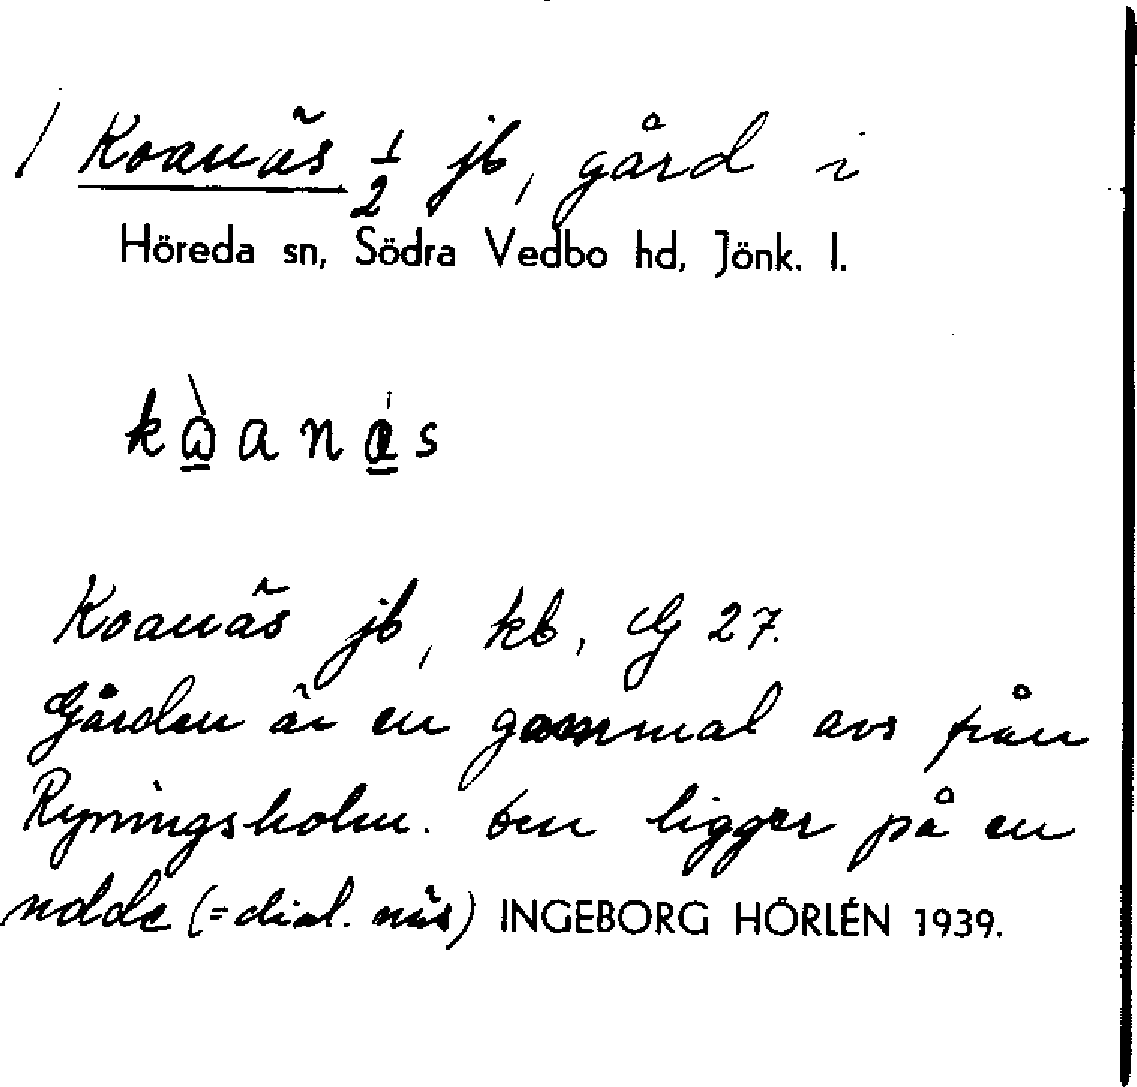 / Koanäs ½ jb, gård i
Höreda sn, Södra Vedbo hd, Jönk. l.
kὼ̱anǽ̱s
Koanäs jb, kb, G 27.
Gården är en gammal avs från
Ryningsholm. Den ligger på en
udde (= dial. näs) INGEBORG HÖRLÉN 1939.